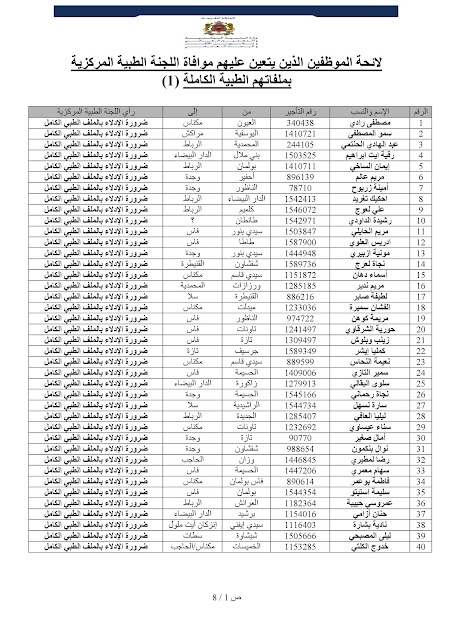 لائحة الموظفين الذين يتعين عليهم موافاة اللجنة الطبية المركزية
بملفاتهم الطبية الكاملة (1)
الرقم الإسم والنسب رقم التأجير من إلى رأي اللجنة الطبية المركزية
1 مصطفى رادي 340438 العيون مكناس ضرورة الإدلاء بالملف الطبي الكامل
2 سمو المصطفى 1410721 اليوسفية مراكش ضرورة الإدلاء بالملف الطبي الكامل
3 عبد الهادي الحنتمي 244105 المحمدية الرباط ضرورة الإدلاء بالملف الطبي الكامل
4 رقية ايت ابراهيم 1503525 بني ملال الدار البيضاء ضرورة الإدلاء بالملف الطبي الكامل
5 إيمان الساخي 1410711 بولمان الرباط ضرورة الإدلاء بالملف الطبي الكامل
6 مريم عالم 896139 أحفير وجدة ضرورة الإدلاء بالملف الطبي الكامل
7 أمينة زريوح 78710 الناظور وجدة ضرورة الإدلاء بالملف الطبي الكامل
8 احكيك تغريد 1542413 الدار البيضاء الرباط ضرورة الإدلاء بالملف الطبي الكامل
9 علي لعوج 1546072 كلميم الرباط ضرورة الإدلاء بالملف الطبي الكامل
10 رشيدة الداودي 1542971 طانطان ؟ ضرورة الإدلاء بالملف الطبي الكامل
11 مريم الحايلي 1503847 سيدي بنور فاس ضرورة الإدلاء بالملف الطبي الكامل
12 ادريس العلوي 1587900 طاطا فاس ضرورة الإدلاء بالملف الطبي الكامل
13 مونية ازبيري 1444948 سيدي بنور وجدة ضرورة الإدلاء بالملف الطبي الكامل
14 نجاة لعرج 1589736 شفشاون القنيطرة ضرورة الإدلاء بالملف الطبي الكامل
15 أسماء دهان 1151872 سيدي قاسم مكناس ضرورة الإدلاء بالملف الطبي الكامل
16 مريم لدير 1285185 ورزازات المحمدية ضرورة الإدلاء بالملف الطبي الكامل
17 لطيفة صابر 886216 القنيطرة سلا ضرورة الإدلاء بالملف الطبي الكامل
18 الفشان سميرة 1233036 ميدلت مكناس ضرورة الإدلاء بالملف الطبي الكامل
19 مريمة كوهن 974722 الناظور فاس ضرورة الإدلاء بالملف الطبي الكامل
20 حورية الشرقاوي 1241497 تاونات فاس ضرورة الإدلاء بالملف الطبي الكامل
21 زينب وبلوش 1309497 تازة فاس ضرورة الإدلاء بالملف الطبي الكامل
22 كمليا إيشر 1589349 جرسيف تازة ضرورة الإدلاء بالملف الطبي الكامل
23 نعيمة النحاس 899593 سيدي قاسم مكناس ضرورة الإدلاء بالملف الطبي الكامل
24 سمير التازي 1409006 الحسيمة فاس ضرورة الإدلاء بالملف الطبي الكامل
25 سلوى البقالي 1279913 زاكورة الدار البيضاء ضرورة الإدلاء بالملف الطبي الكامل
26 نجاة رحماني 1545166 الحسيمة وجدة ضرورة الإدلاء بالملف الطبي الكامل
27 سارة نسهل 1544734 الراشيدية سلا ضرورة الإدلاء بالملف الطبي الكامل
28 ليليا العافي 1285407 الجديدة الرباط ضرورة الإدلاء بالملف الطبي الكامل
29 سناء عيساوي 1232692 تاونات مكناس ضرورة الإدلاء بالملف الطبي الكامل
30 أمال صغير 90770 تازة وجدة ضرورة الإدلاء بالملف الطبي الكامل
31 نوال بنكمون 988654 شفشاون وجدة ضرورة الإدلاء بالملف الطبي الكامل
32 رشا لمطيري 1446845 وزان الحاجب ضرورة الإدلاء بالملف الطبي الكامل
33 سهام معمري 1447206 الحسيمة فاس ضرورة الإدلاء بالملف الطبي الكامل
34 فاطمة بوعمر 890614 فاس بولمان مكناس ضرورة الإدلاء بالملف الطبي الكامل
35 سليمة استيتو 1544354 بولمان فاس ضرورة الإدلاء بالملف الطبي الكامل
36 عمروسي حبيبة 1182364 العرائش الرباط ضرورة الإدلاء بالملف الطبي الكامل
37 حنان أزامي 1154016 برشيد الدار البيضاء ضرورة الإدلاء بالملف الطبي الكامل
38 نادية بشارة 1116403 سيدي إيفني إنزكان أيت ملول ضرورة الإدلاء بالملف الطبي الكامل
39 ليلى المصبحي 1505666 شيشاوة سطات ضرورة الإدلاء بالملف الطبي الكامل
40 خدوج الكلثي 1153285 الخميسات مكناس/الحاجب ضرورة الإدلاء بالملف الطبي الكامل
ص 1 / 8